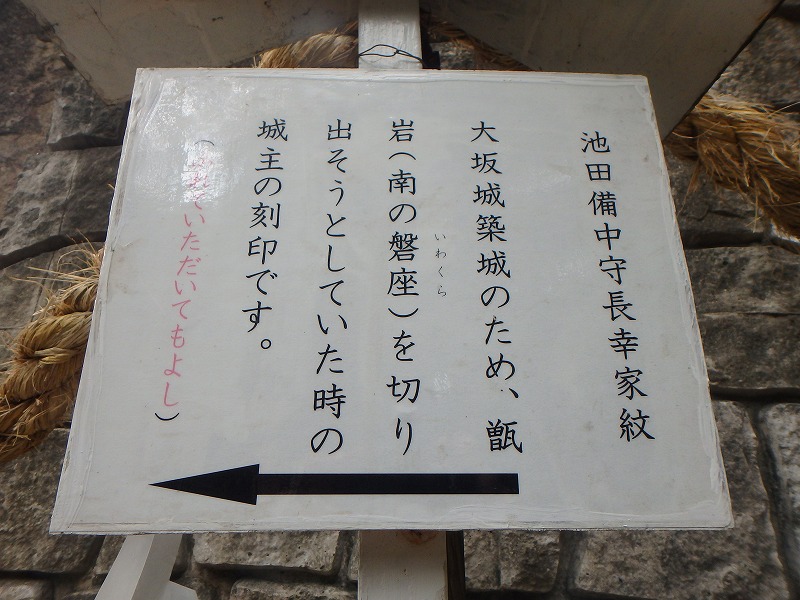 池田備中守長幸家紋
大坂城築城のため、甑
岩（南の磐座）を切り
いわくら
出そうとしていた時の
城主の刻印です。
（ふれていただいてもよし）